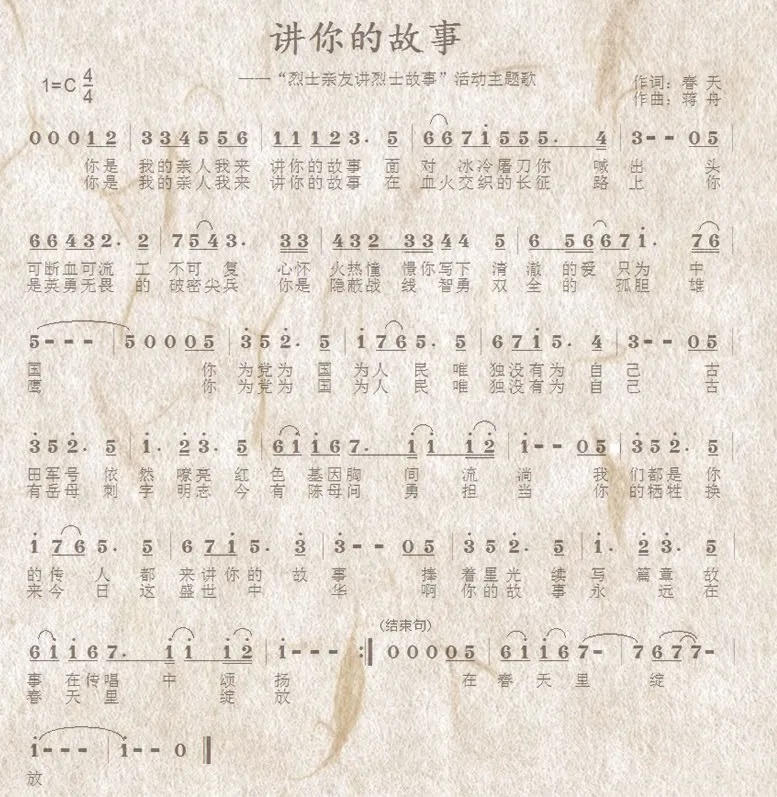 讲你的故事
——“烈士亲友讲烈士故事”活动主题歌
1=C 4/4
作词：春 天
作曲：蒋 舟
0 0 0 1 2 | 3 3 4 5 5 6 | 1 1 1 2 3. 5 | 6 6 7 i 5 5 5. 4 | 3 - - 0 5 |
你是 我的亲人我来 讲你的故事 面 对 冰冷屠刀你 喊 出 头
你是 我的亲人我来 讲你的故事 在 血火交织的长征 路 上 你
6 6 4 3 2. 2 | 7 5 4 3. 3 3 | 4 3 2 3 3 4 4 5 | 6 5 6 6 7 i. 7 6 |
可断血可流 工 不可 复 心怀 火热憧 憬你写下 清 澈 的爱 只为 中
是英勇无畏 的 破密尖兵 你是 隐蔽战 线 智勇 双 全 的 孤胆 雄
5 - - - | 5 0 0 0 5 | 3 5 2. 5 | i 7 6 5. 5 | 6 7 i 5. 4 | 3 - - 0 5 |
国 你 为党为 国 为人 民 唯 独没有为 自 己 古
鹰 你 为党为 国 为人 民 唯 独没有为 自 己 古
3 5 2. 5 | i. 2 3. 5 | 6 i i 6 7. i i i 2 | i - - 0 5 | 3 5 2. 5 |
田军号 依 然 嘹亮 红 色 基因胸 间 流 淌 我 们都是 你
有岳母 刺 字 明志 今 有 陈母问 勇 担 当 你 的牺牲 换
i 7 6 5. 5 | 6 7 i 5. 3 | 3 - - 0 5 | 3 5 2. 5 | i. 2 3. 5 |
的传 人 都 来讲你的 故 事 捧 着星光 续 写 篇章 故
来今 日 这 盛世中 华 啊 你的故 事 永 远 在
(结束句)
6 i i 6 7. i i i 2 | i - - - :‖ 0 0 0 0 5 | 6 i i 6 7 - | 7 6 7 7 - |
事 在传唱 中 颂 扬 在 春 天 里 绽
春 天 里 绽 放
i - - - | i - - 0 ‖
放